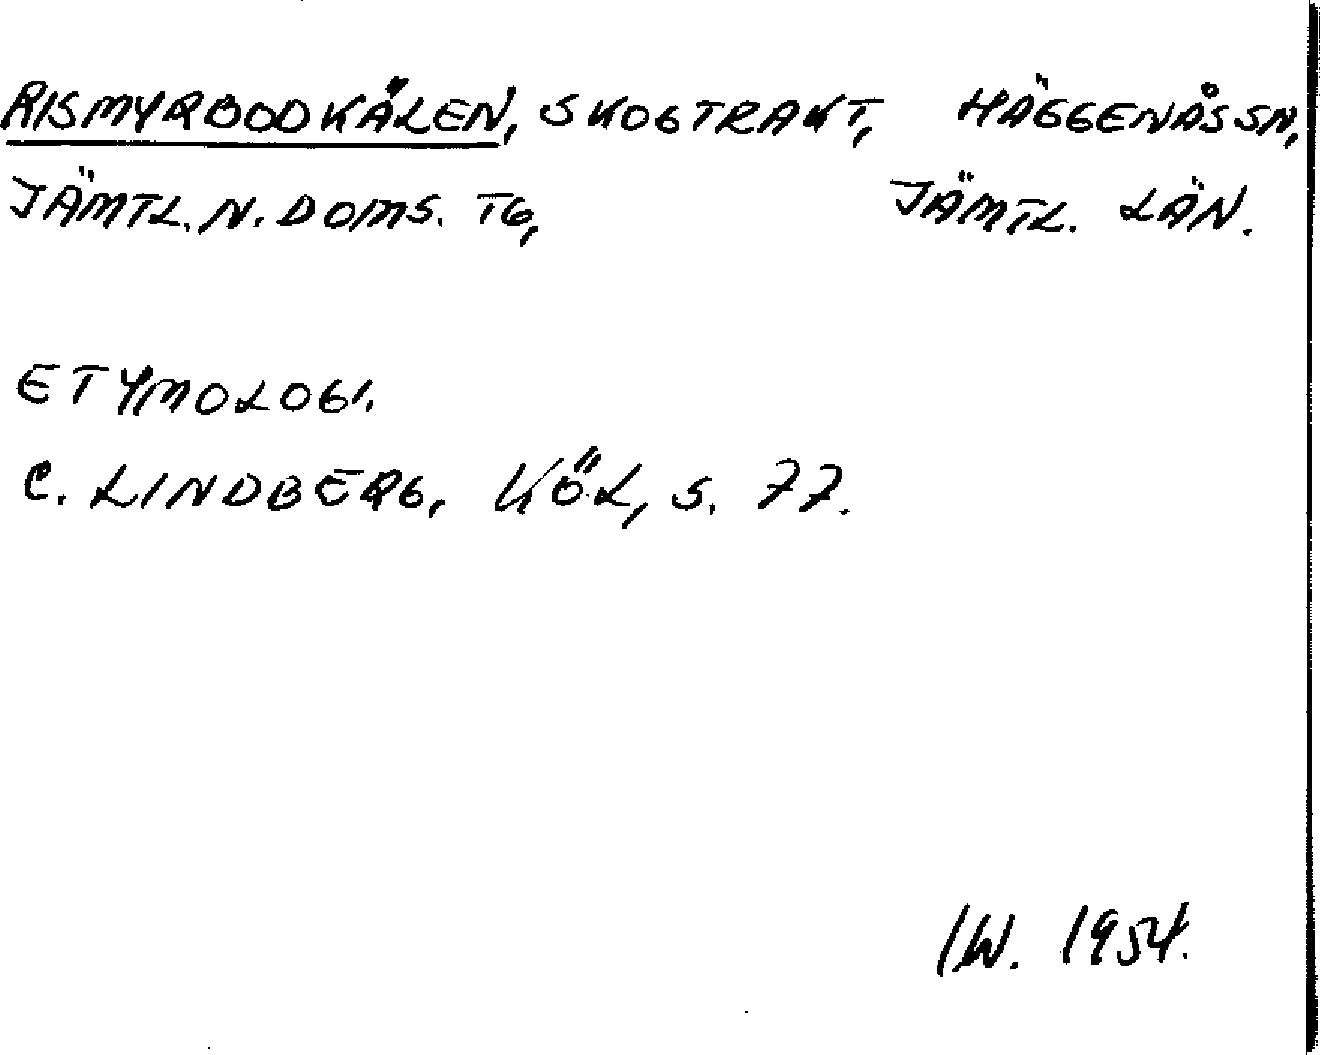 RISMYRBODKÄLEN, SKOGTRAKT, HÄGGENÅS SN,
JÄMTL. N. DOMS. TG, JÄMTL. LÄN.
ETYMOLOGI.
C. LINDBERG, KÖL, S. 77.
IW. 1954.